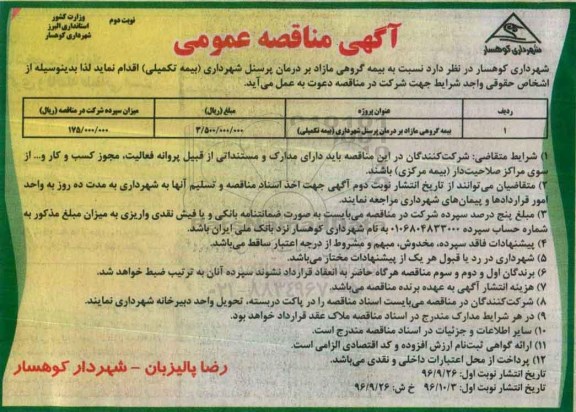 وزارت کشور
استانداری البرز
شهرداری کوهسار
نوبت دوم
آگهی مناقصه عمومی
شهرداری کوهسار
شهرداری کوهسار در نظر دارد نسبت به بیمه گروهی مازاد بر درمان پرسنل شهرداری (بیمه تکمیلی) اقدام نماید لذا بدینوسیله از
اشخاص حقوقی واجد شرایط جهت شرکت در مناقصه دعوت به عمل می‌آید.
ردیف عنوان پروژه مبلغ (ریال) میزان سپرده شرکت در مناقصه (ریال)
۱ بیمه گروهی مازاد بر درمان پرسنل شهرداری (بیمه تکمیلی) ۳/۵۰۰/۰۰۰/۰۰۰ ۱۷۵/۰۰۰/۰۰۰
۱) شرایط متقاضی: شرکت‌کنندگان در این مناقصه باید دارای مدارک و مستنداتی از قبیل پروانه فعالیت، مجوز کسب و کار و... از
سوی مراکز صلاحیت‌دار (بیمه مرکزی) باشند.
۲) متقاضیان می‌توانند از تاریخ انتشار نوبت دوم آگهی جهت اخذ اسناد مناقصه و تسلیم آنها به شهرداری به مدت ده روز به واحد
امور قراردادها و پیمان‌های شهرداری مراجعه نمایند.
۳) مبلغ پنج درصد سپرده شرکت در مناقصه می‌بایست به صورت ضمانتنامه بانکی و یا فیش نقدی واریزی به میزان مبلغ مذکور به
شماره حساب سپرده ۰۱۰۶۸۰۴۸۳۳۰۰۰ به نام شهرداری کوهسار نزد بانک ملی ایران باشد.
۴) پیشنهادات فاقد سپرده، مخدوش، مبهم و مشروط از درجه اعتبار ساقط می‌باشد.
۵) شهرداری در رد یا قبول هر یک از پیشنهادات مختار می‌باشد.
۶) برندگان اول و دوم و سوم مناقصه هرگاه حاضر به انعقاد قرارداد نشوند سپرده آنان به ترتیب ضبط خواهد شد.
۷) هزینه انتشار آگهی به عهده برنده مناقصه می‌باشد.
۸) شرکت‌کنندگان در مناقصه می‌بایست اسناد مناقصه را در پاکت دربسته، تحویل واحد دبیرخانه شهرداری نمایند.
۹) در هر شرایط مدارک مندرج در اسناد مناقصه ملاک عقد قرارداد خواهد بود.
۱۰) سایر اطلاعات و جزئیات در اسناد مناقصه مندرج است.
۱۱) ارائه گواهی ثبت‌نام ارزش افزوده و کد اقتصادی الزامی است.
۱۲) پرداخت از محل اعتبارات داخلی و نقدی می‌باشد.
تاریخ انتشار نوبت اول: ۹۶/۹/۲۶
تاریخ انتشار نوبت دوم: ۹۶/۱۰/۳ خ ش: ۹۶/۹/۲۶
رضا پالیزبان - شهردار کوهسار